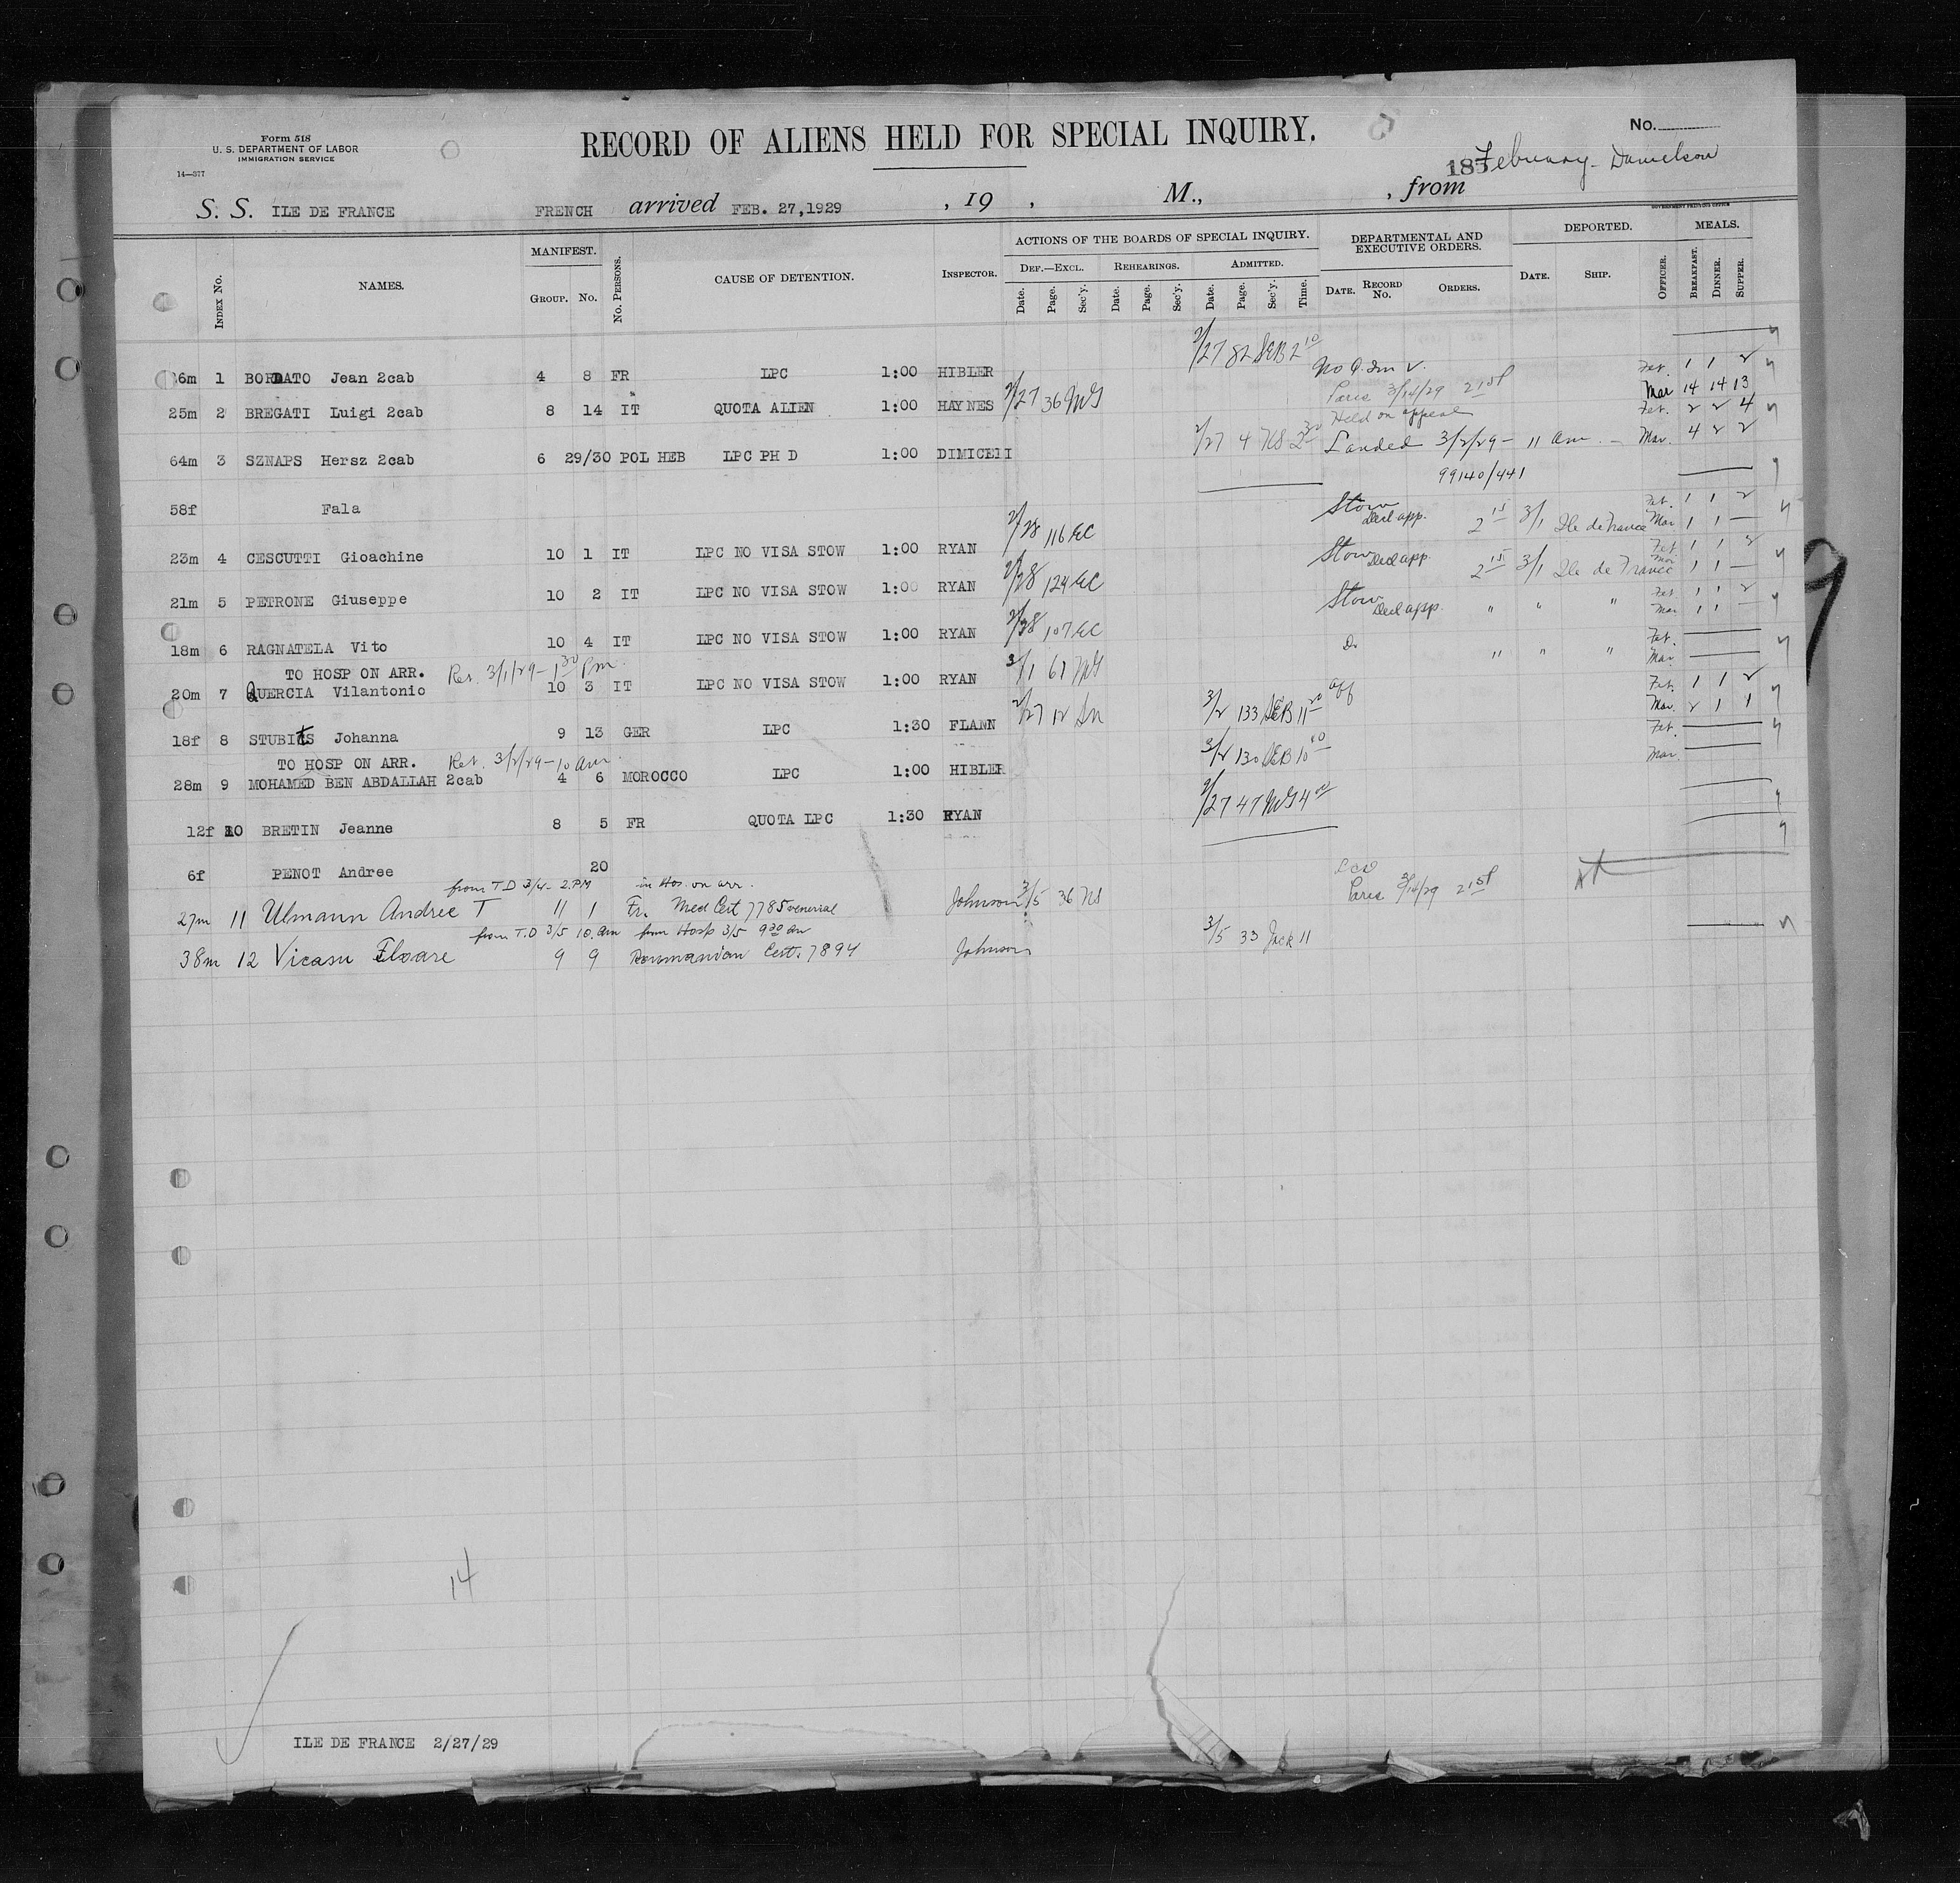 Form 518
U. S. DEPARTMENT OF LABOR
IMMIGRATION SERVICE
14—377
RECORD OF ALIENS HELD FOR SPECIAL INQUIRY.
No.
185 February - Danielson
S. S. ILE DE FRANCE FRENCH arrived FEB. 27,1929 , 19 , M., , from
GOVERNMENT PRINTING OFFICE
INDEX NO. NAMES. MANIFEST. GROUP. NO. NO. PERSONS. CAUSE OF DETENTION. INSPECTOR. ACTIONS OF THE BOARDS OF SPECIAL INQUIRY. DEF.—EXCL. Date. Page. Sec'y. REHEARINGS. Date. Page. Sec'y. ADMITTED. Date. Page. Sec'y. Time. DEPARTMENTAL AND EXECUTIVE ORDERS. DATE. RECORD NO. ORDERS. DEPORTED. DATE. SHIP. OFFICER. MEALS. BREAKFAST. DINNER. SUPPER.
6m 1 BORDATO Jean 2cab 4 8 FR LPC 1:00 HIBLER 2/27 82 SEB 2 10
25m 2 BREGATI Luigi 2cab 8 14 IT QUOTA ALIEN 1:00 HAYNES 2/27 36 MG Paris 3/14/29 Feb. 1 1 2
Mar 14 14 13
64m 3 SZNAPS Hersz 2cab 6 29/30 POL HEB LPC PH D 1:00 DIMICElI 2/27 4 NS 2 30 Held on appeal Landed 3/2/29 - 11 am. Feb. 2 2 4
Mar. 4 2 2
99140/441
58f Fala
23m 4 CESCUTTI Gioachine 10 1 IT LPC NO VISA STOW 1:00 RYAN 2/28 116 EC Stow Decl app. 2 15 3/1 Ile de France Feb. 1 1 2
Mar 1 1 —
21m 5 PETRONE Giuseppe 10 2 IT LPC NO VISA STOW 1:00 RYAN 2/28 124 EC Stow Decl app. 2 15 3/1 Ile de France Feb. 1 1 2
Mar 1 1 —
18m 6 RAGNATELA Vito 10 4 IT LPC NO VISA STOW 1:00 RYAN 2/28 107 EC Stow Decl app. " " " Feb 1 1 2
Mar 1 1 —
TO HOSP ON ARR. Ret. 3/1/29 - 1 30 Pm.
20m 7 QUERCIA Vilantonio 10 3 IT LPC NO VISA STOW 1:00 RYAN 3/1 61 MG Do " " " Feb.
Mar.
18f 8 STUBITS Johanna 9 13 GER LPC 1:30 FLANN 2/27 12 3/2 133 SEB 11 20 Feb. 1 1 2
Mar. 2 1 1
TO HOSP ON ARR. Ret. 3/2/29 - 10 am.
28m 9 MOHAMED BEN ABDALLAH 2cab 4 6 MOROCCO LPC 1:00 HIBLER 3/2 130 SEB 10 Feb.
Mar.
12f 10 BRETIN Jeanne 8 5 FR QUOTA LPC 1:30 RYAN 2/27 47 MG 4 00
6f PENOT Andree 20
from T D 3/4 - 2 PM in Hos. on arr.
27m 11 Ulmann Andree T 11 1 Fr. Med Cert 7785 venerial Johnson 3/5 36 NS Paris 3/14/29
from T.D 3/5 10. am from Hosp 3/5 9 30 am
38m 12 Vicasu Floare 9 9 Roumanian Cert. 7894 Johnson 3/5 33 Jack 11
14
ILE DE FRANCE 2/27/29